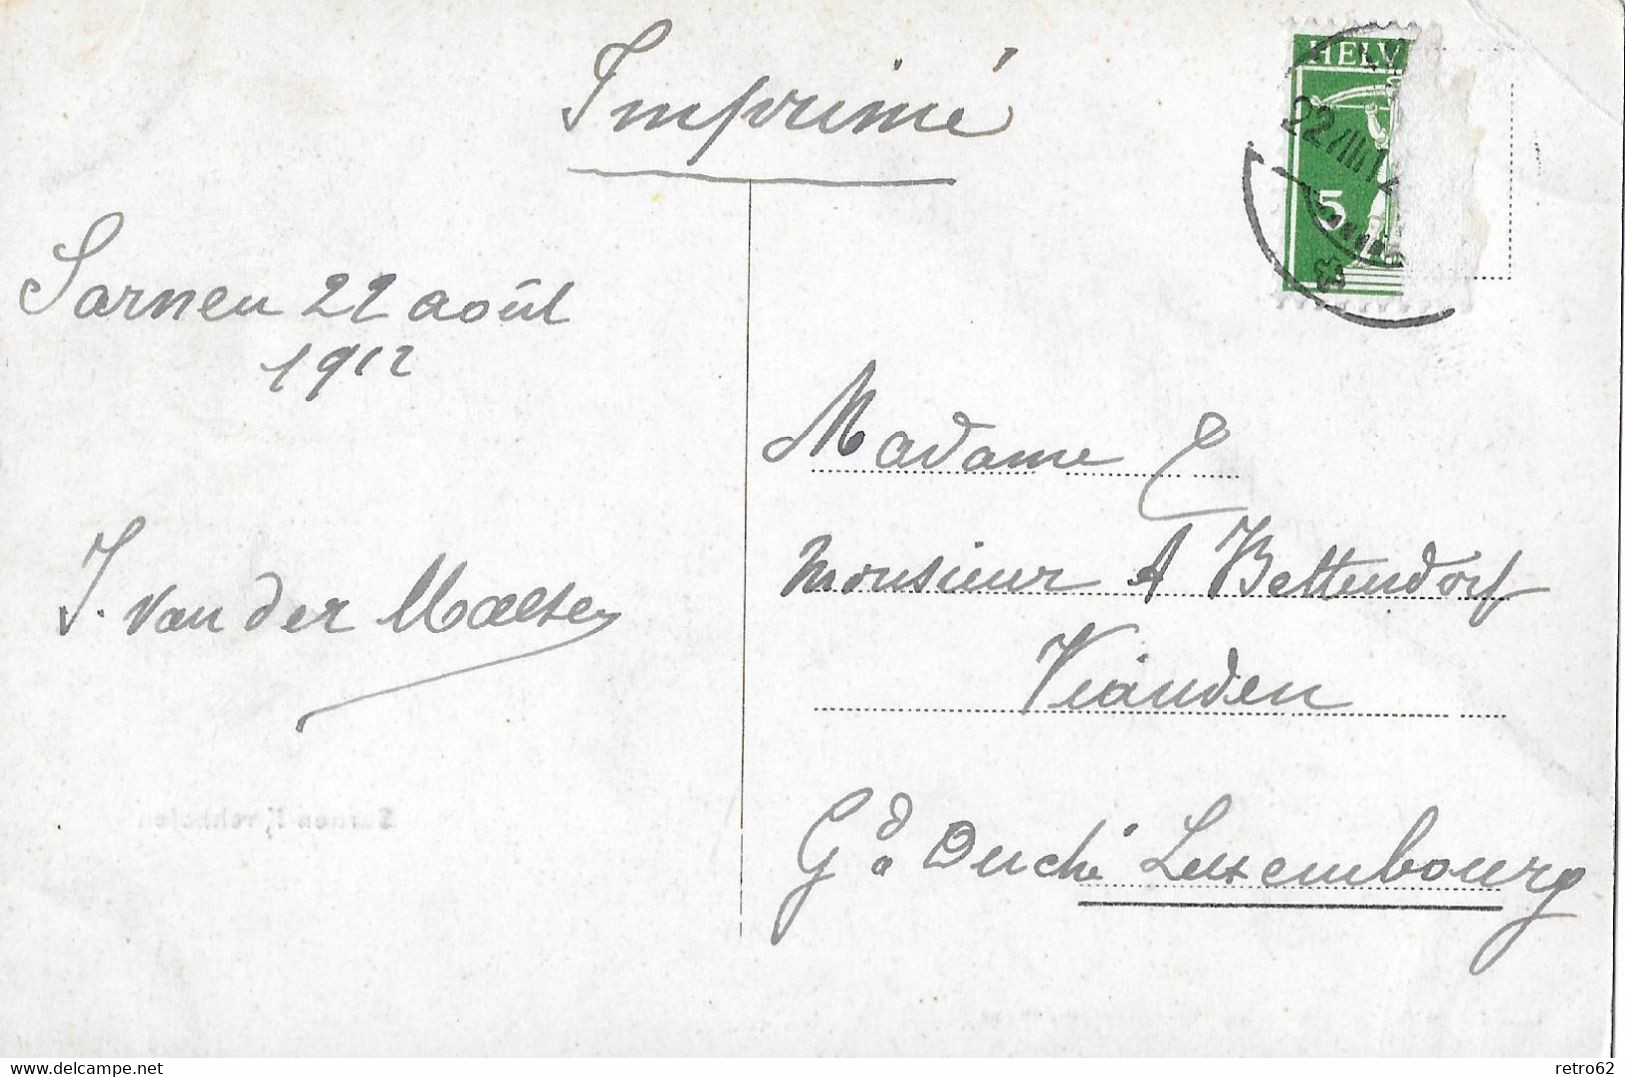 Imprimé
HELV
22.VIII.12
5
Sarnen 22 août
1912
J. van der Maesen
Madame &
monsieur A Bettendorf
Vianden
Gd Duché Luxembourg
delcampe.net
retro62